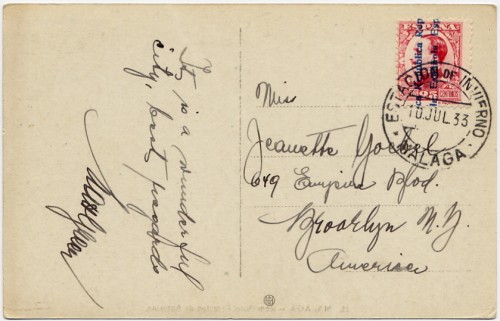 It is a wonderful
city, best regards
Miss
Jeanette
649 Empire Blvd.
Brooklyn N.Y.
America
ESTACION DE INVIERNO
10 JUL 33
MALAGA
República Esp
25